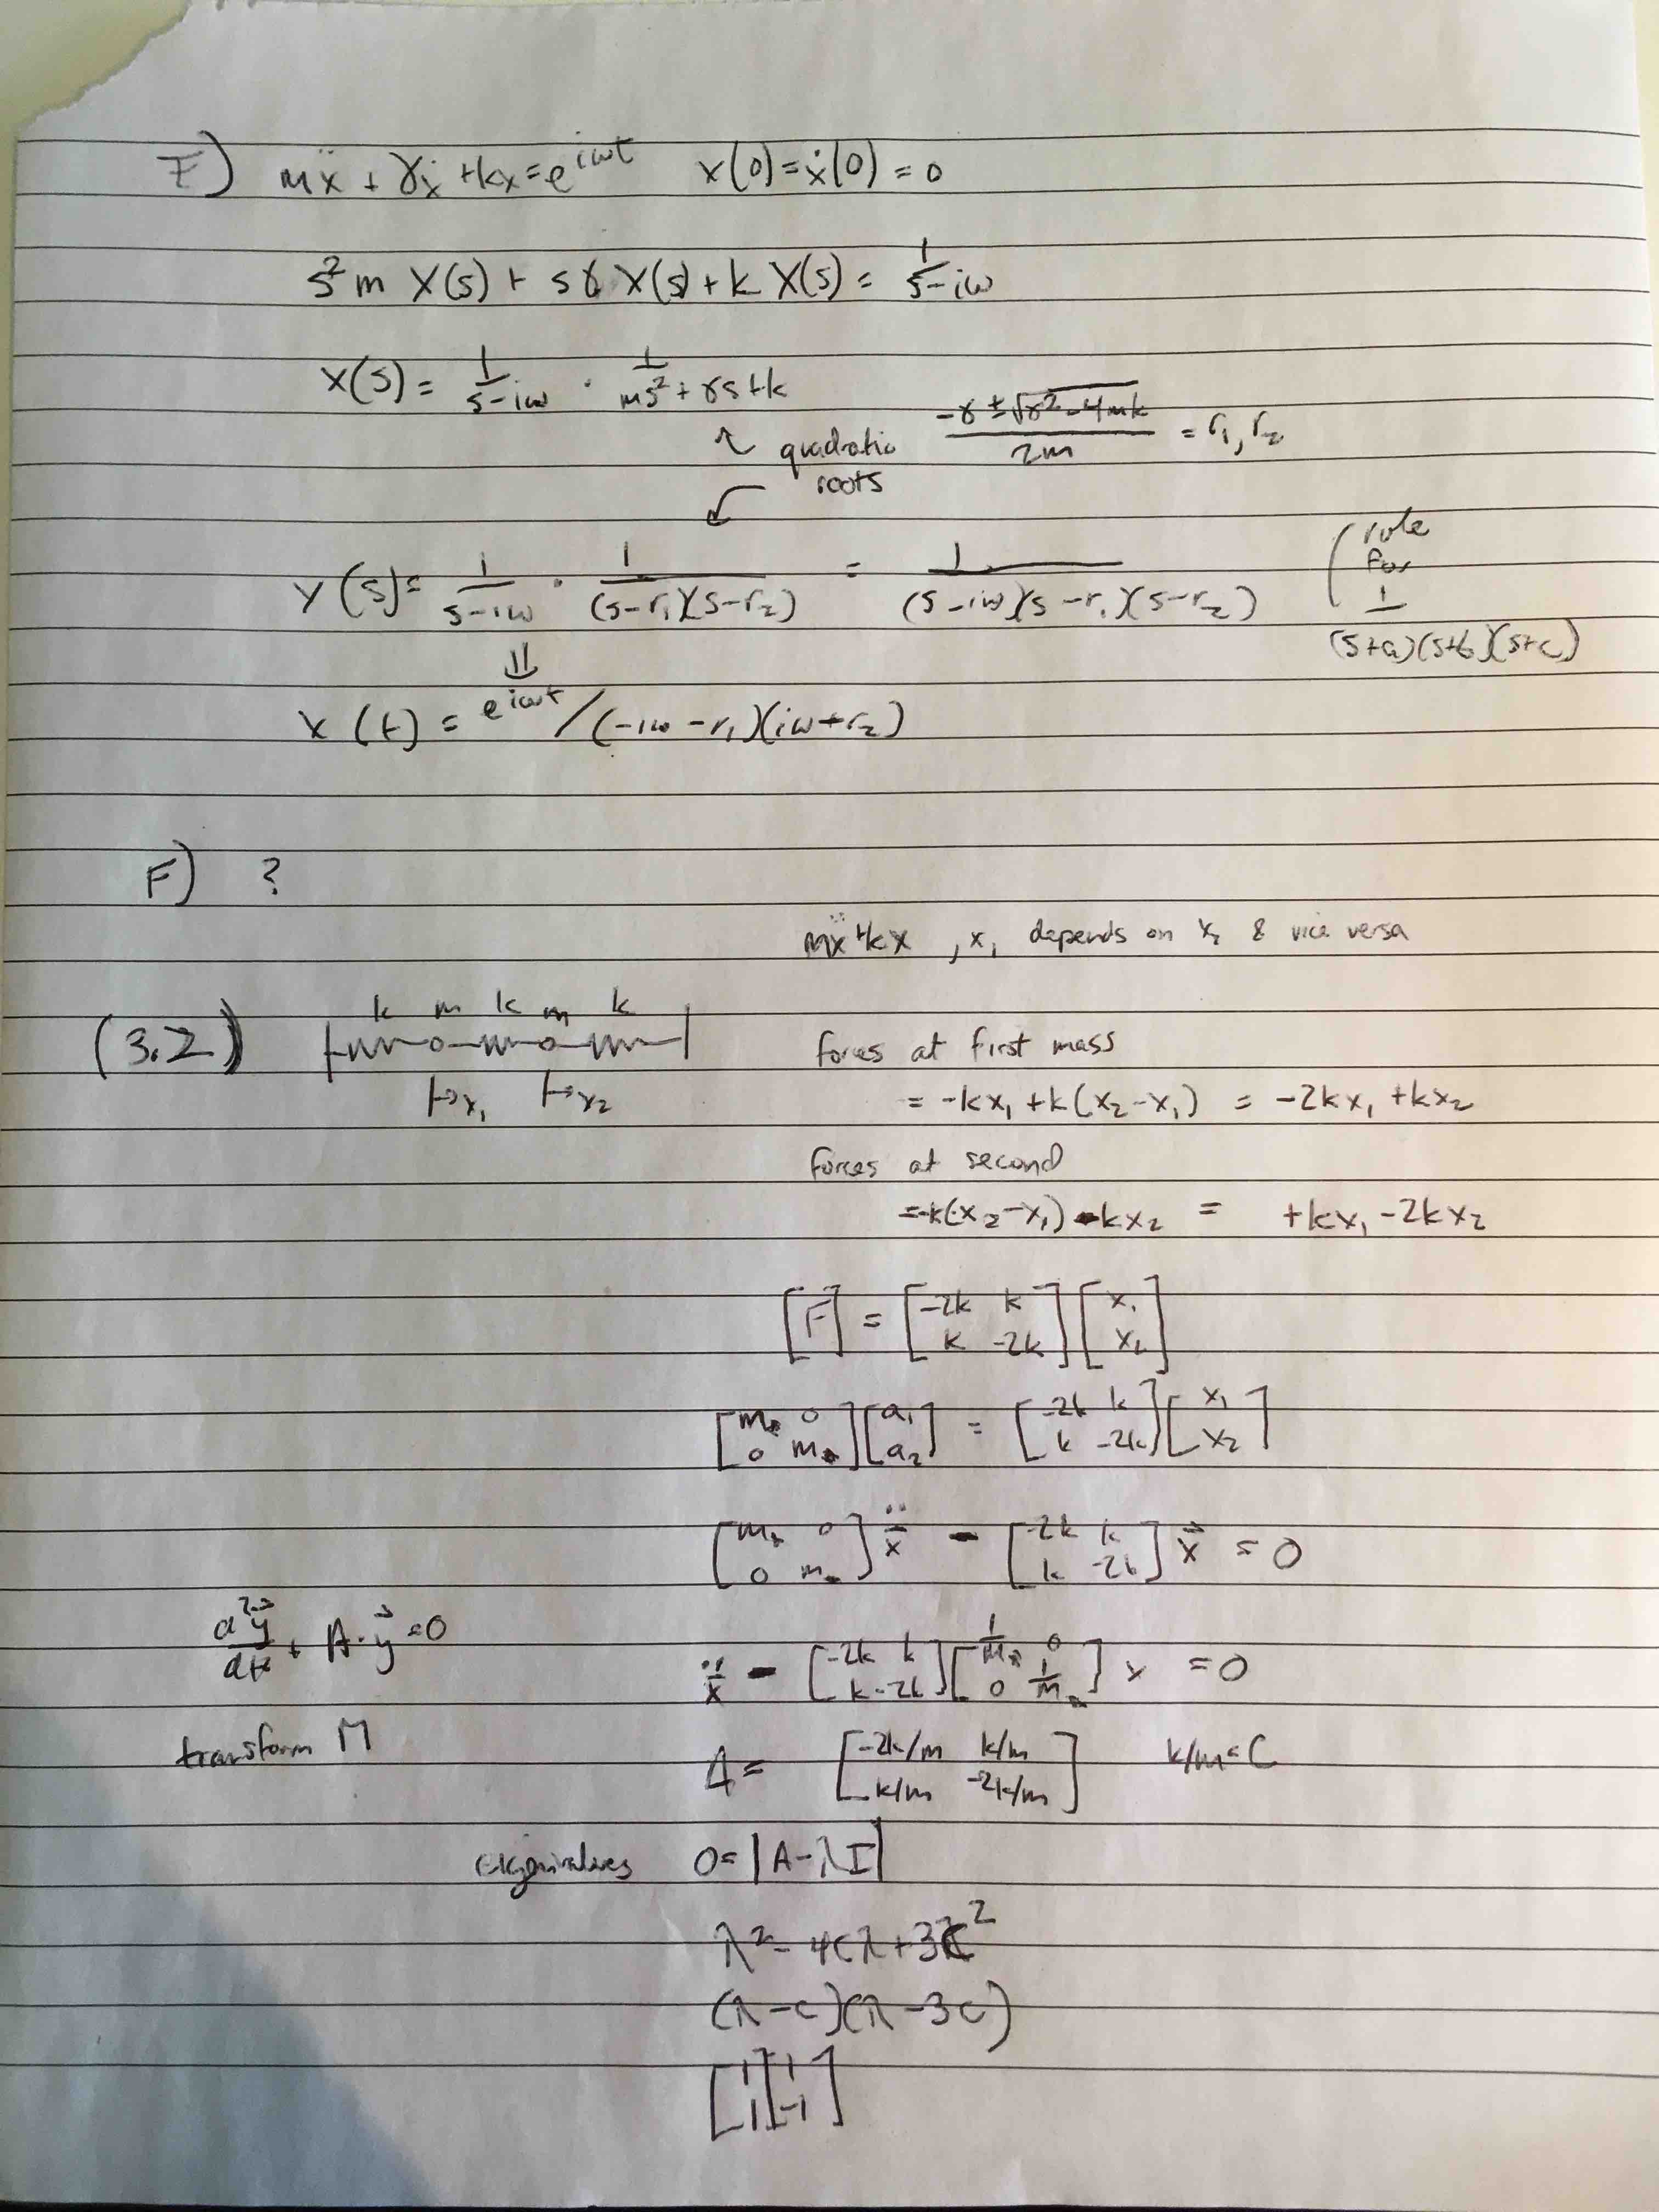 E) mẍ + γẋ + kx = e^{iωt} x(0) = ẋ(0) = 0
s²m X(s) + sγ X(s) + k X(s) = 1/(s-iω)
X(s) = 1/(s-iω) · 1/(ms² + γs + k)
↑ quadratic roots (-γ ± √(γ² - 4mk))/2m = r₁, r₂
X(s) = 1/(s-iω) · 1/((s-r₁)(s-r₂)) = 1/((s-iω)(s-r₁)(s-r₂)) (rule for 1/((s+a)(s+b)(s+c))
⇓
x(t) = e^{iωt}/(-iω - r₁)(iω + r₂)
F) ?
mẍ + kx , x₁ depends on x₂ & vice versa
(3.2) k m k m k
↦x₁ ↦x₂
forces at first mass
= -kx₁ + k(x₂ - x₁) = -2kx₁ + kx₂
forces at second
= -k(x₂ - x₁) - kx₂ = +kx₁ - 2kx₂
[F] = [-2k k; k -2k] [x₁; x₂]
[m 0; 0 m] [a₁; a₂] = [-2k k; k -2k] [x₁; x₂]
[m 0; 0 m] ẍ - [-2k k; k -2k] x⃗ = 0
d²y⃗/dt² + A·y⃗ = 0
ẍ - [-2k k; k -2k] [1/m 0; 0 1/m] x = 0
transform M
A = [-2k/m k/m; k/m -2k/m] k/m = C
eigenvalues 0 = |A - λI|
λ² - 4cλ + 3c²
(λ - c)(λ - 3c)
[1; 1] [1; -1]